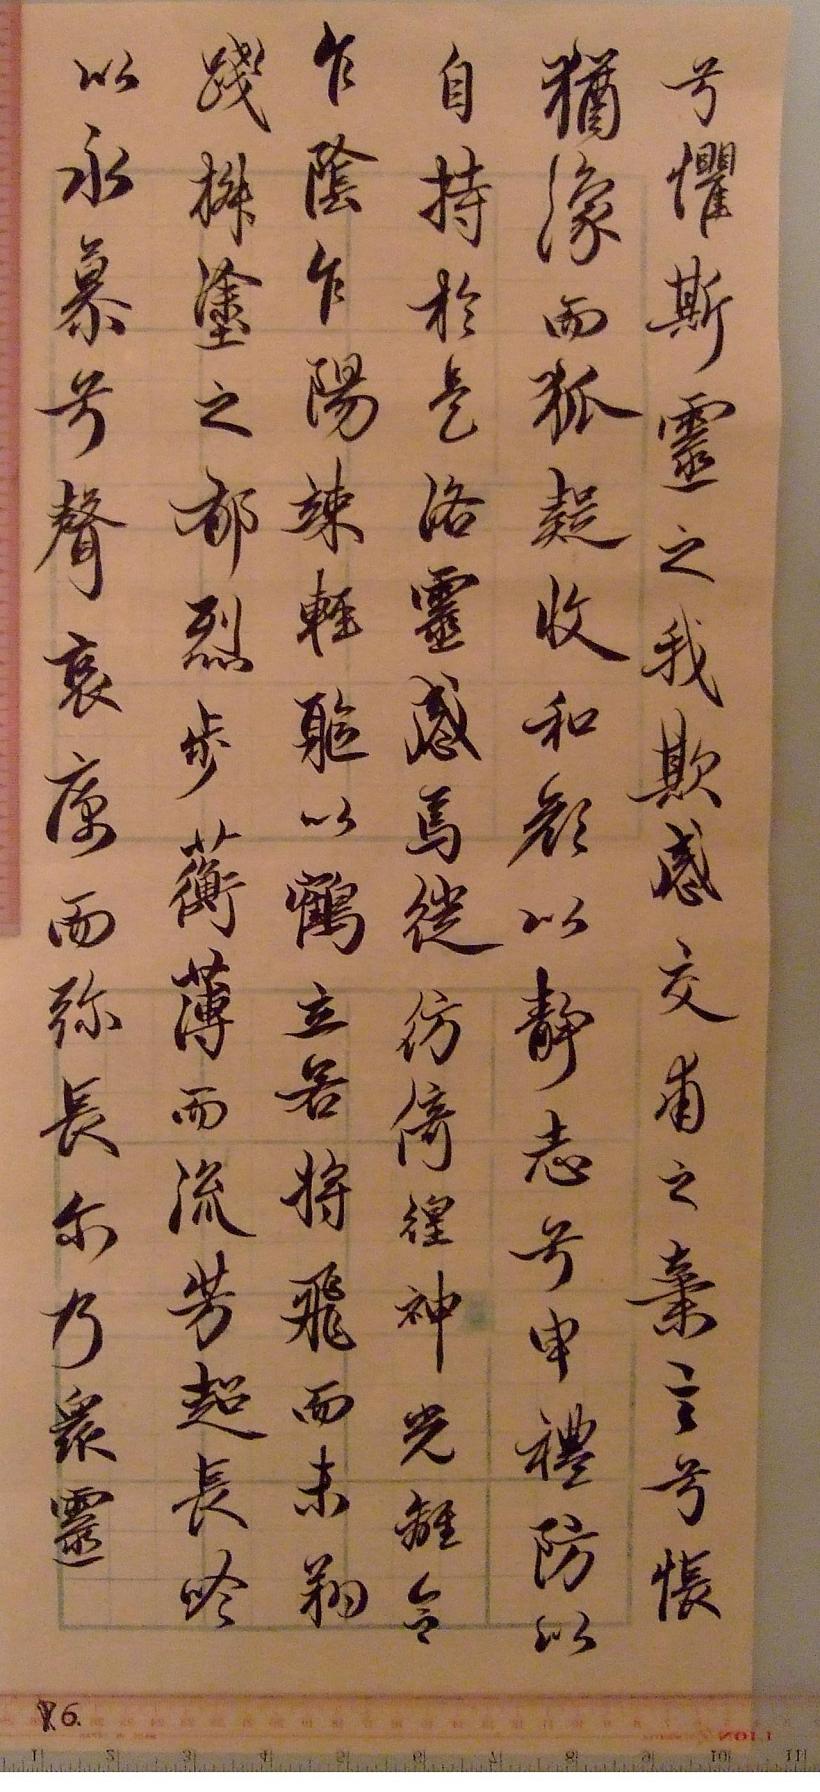 兮懼斯靈之我欺感交甫之棄言兮悵
猶豫而狐疑收和顔以静志兮申禮防以
自持於是洛靈感焉徙倚彷徨神光離合
乍陰乍陽竦輕軀以鶴立若將飛而未翔
踐椒塗之郁烈步蘅薄而流芳超長吟
以永慕兮聲哀厲而弥長尔乃衆靈
6.
LION
1 2 3 4 5 6 7 8 9 10 11